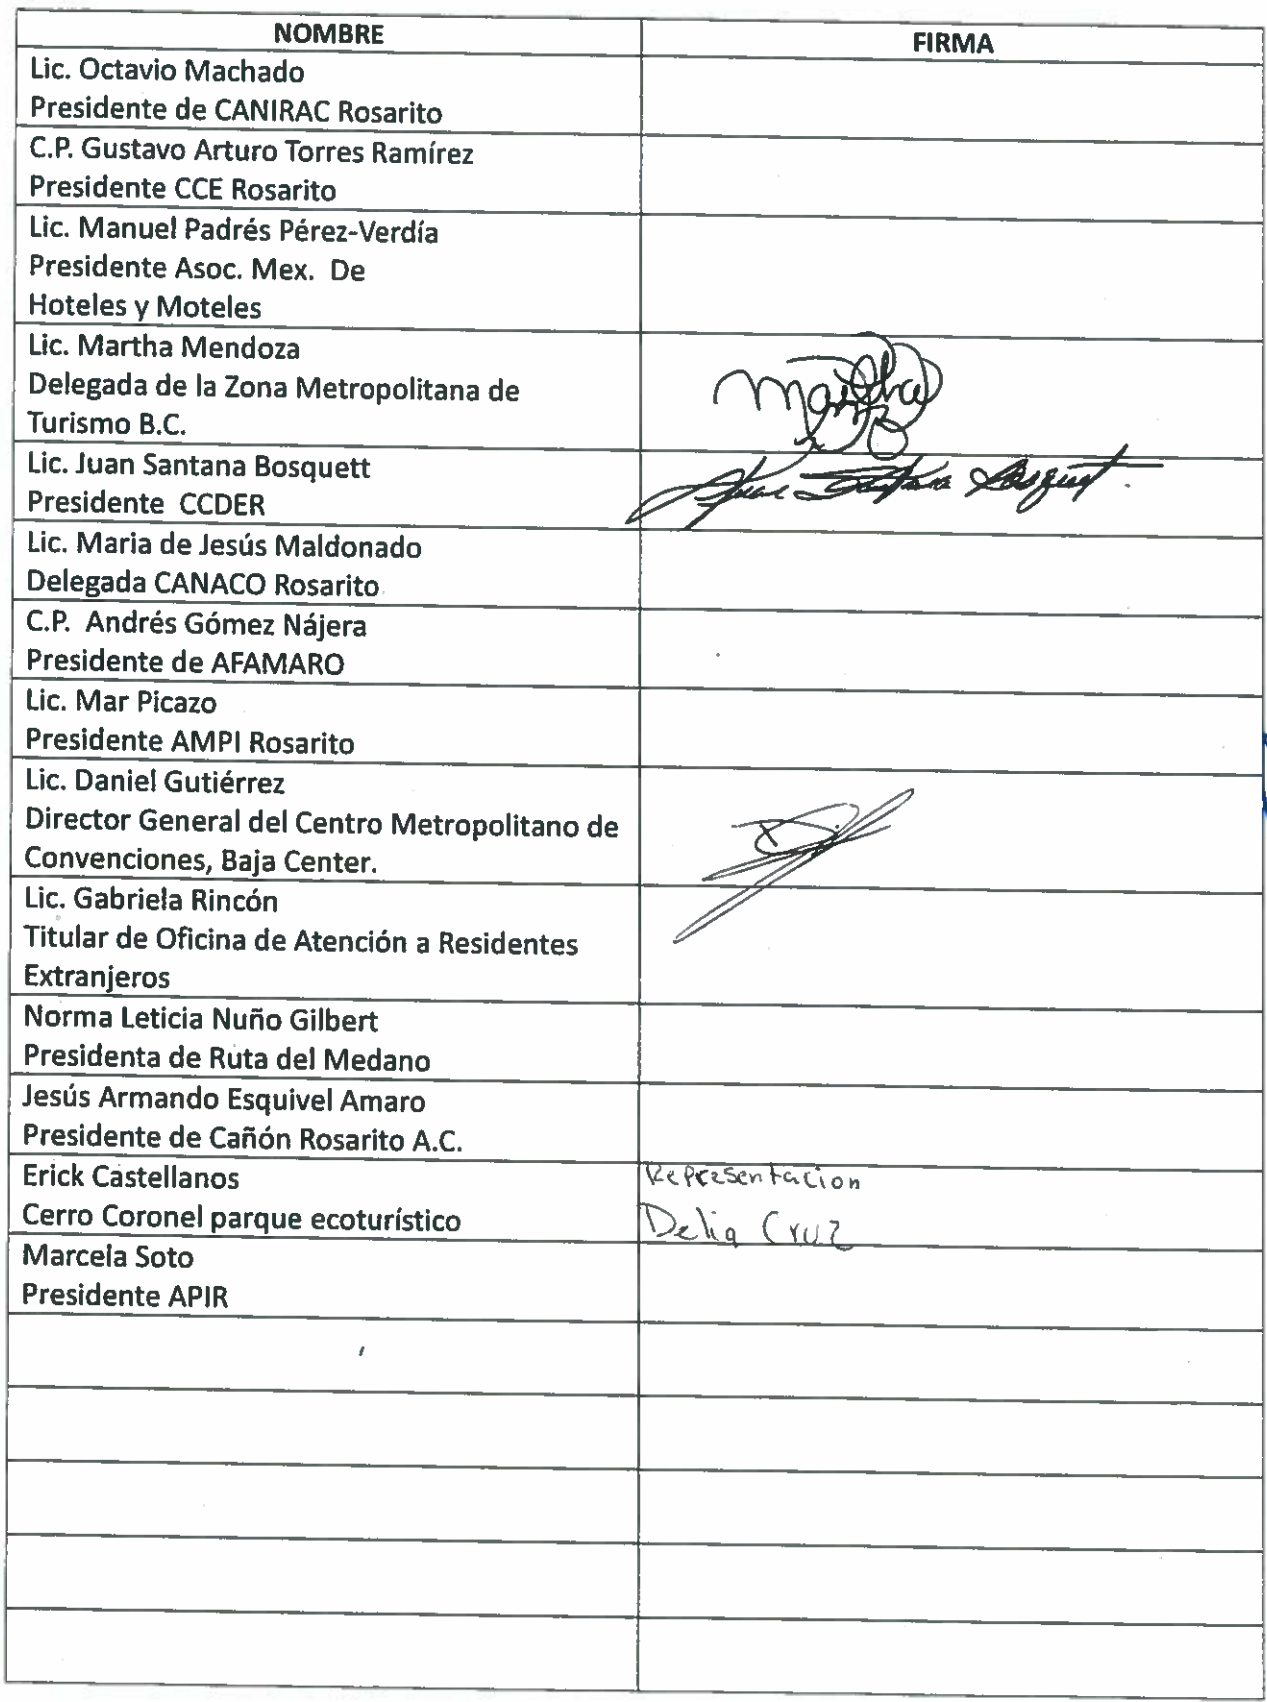 NOMBRE
FIRMA
Lic. Octavio Machado
Presidente de CANIRAC Rosarito
C.P. Gustavo Arturo Torres Ramírez
Presidente CCE Rosarito
Lic. Manuel Padrés Pérez-Verdía
Presidente Asoc. Mex.  De
Hoteles y Moteles
Lic. Martha Mendoza
Delegada de la Zona Metropolitana de
Turismo B.C.
Martha
Lic. Juan Santana Bosquett
Presidente  CCDER
Juan Santana Bosquett
Lic. Maria de Jesús Maldonado
Delegada CANACO Rosarito
C.P.  Andrés Gómez Nájera
Presidente de AFAMARO
Lic. Mar Picazo
Presidente AMPI Rosarito
Lic. Daniel Gutiérrez
Director General del Centro Metropolitano de
Convenciones, Baja Center.
Lic. Gabriela Rincón
Titular de Oficina de Atención a Residentes
Extranjeros
Norma Leticia Nuño Gilbert
Presidenta de Ruta del Medano
Jesús Armando Esquivel Amaro
Presidente de Cañón Rosarito A.C.
Erick Castellanos
Cerro Coronel parque ecoturístico
Representacion
Delia Cruz
Marcela Soto
Presidente APIR